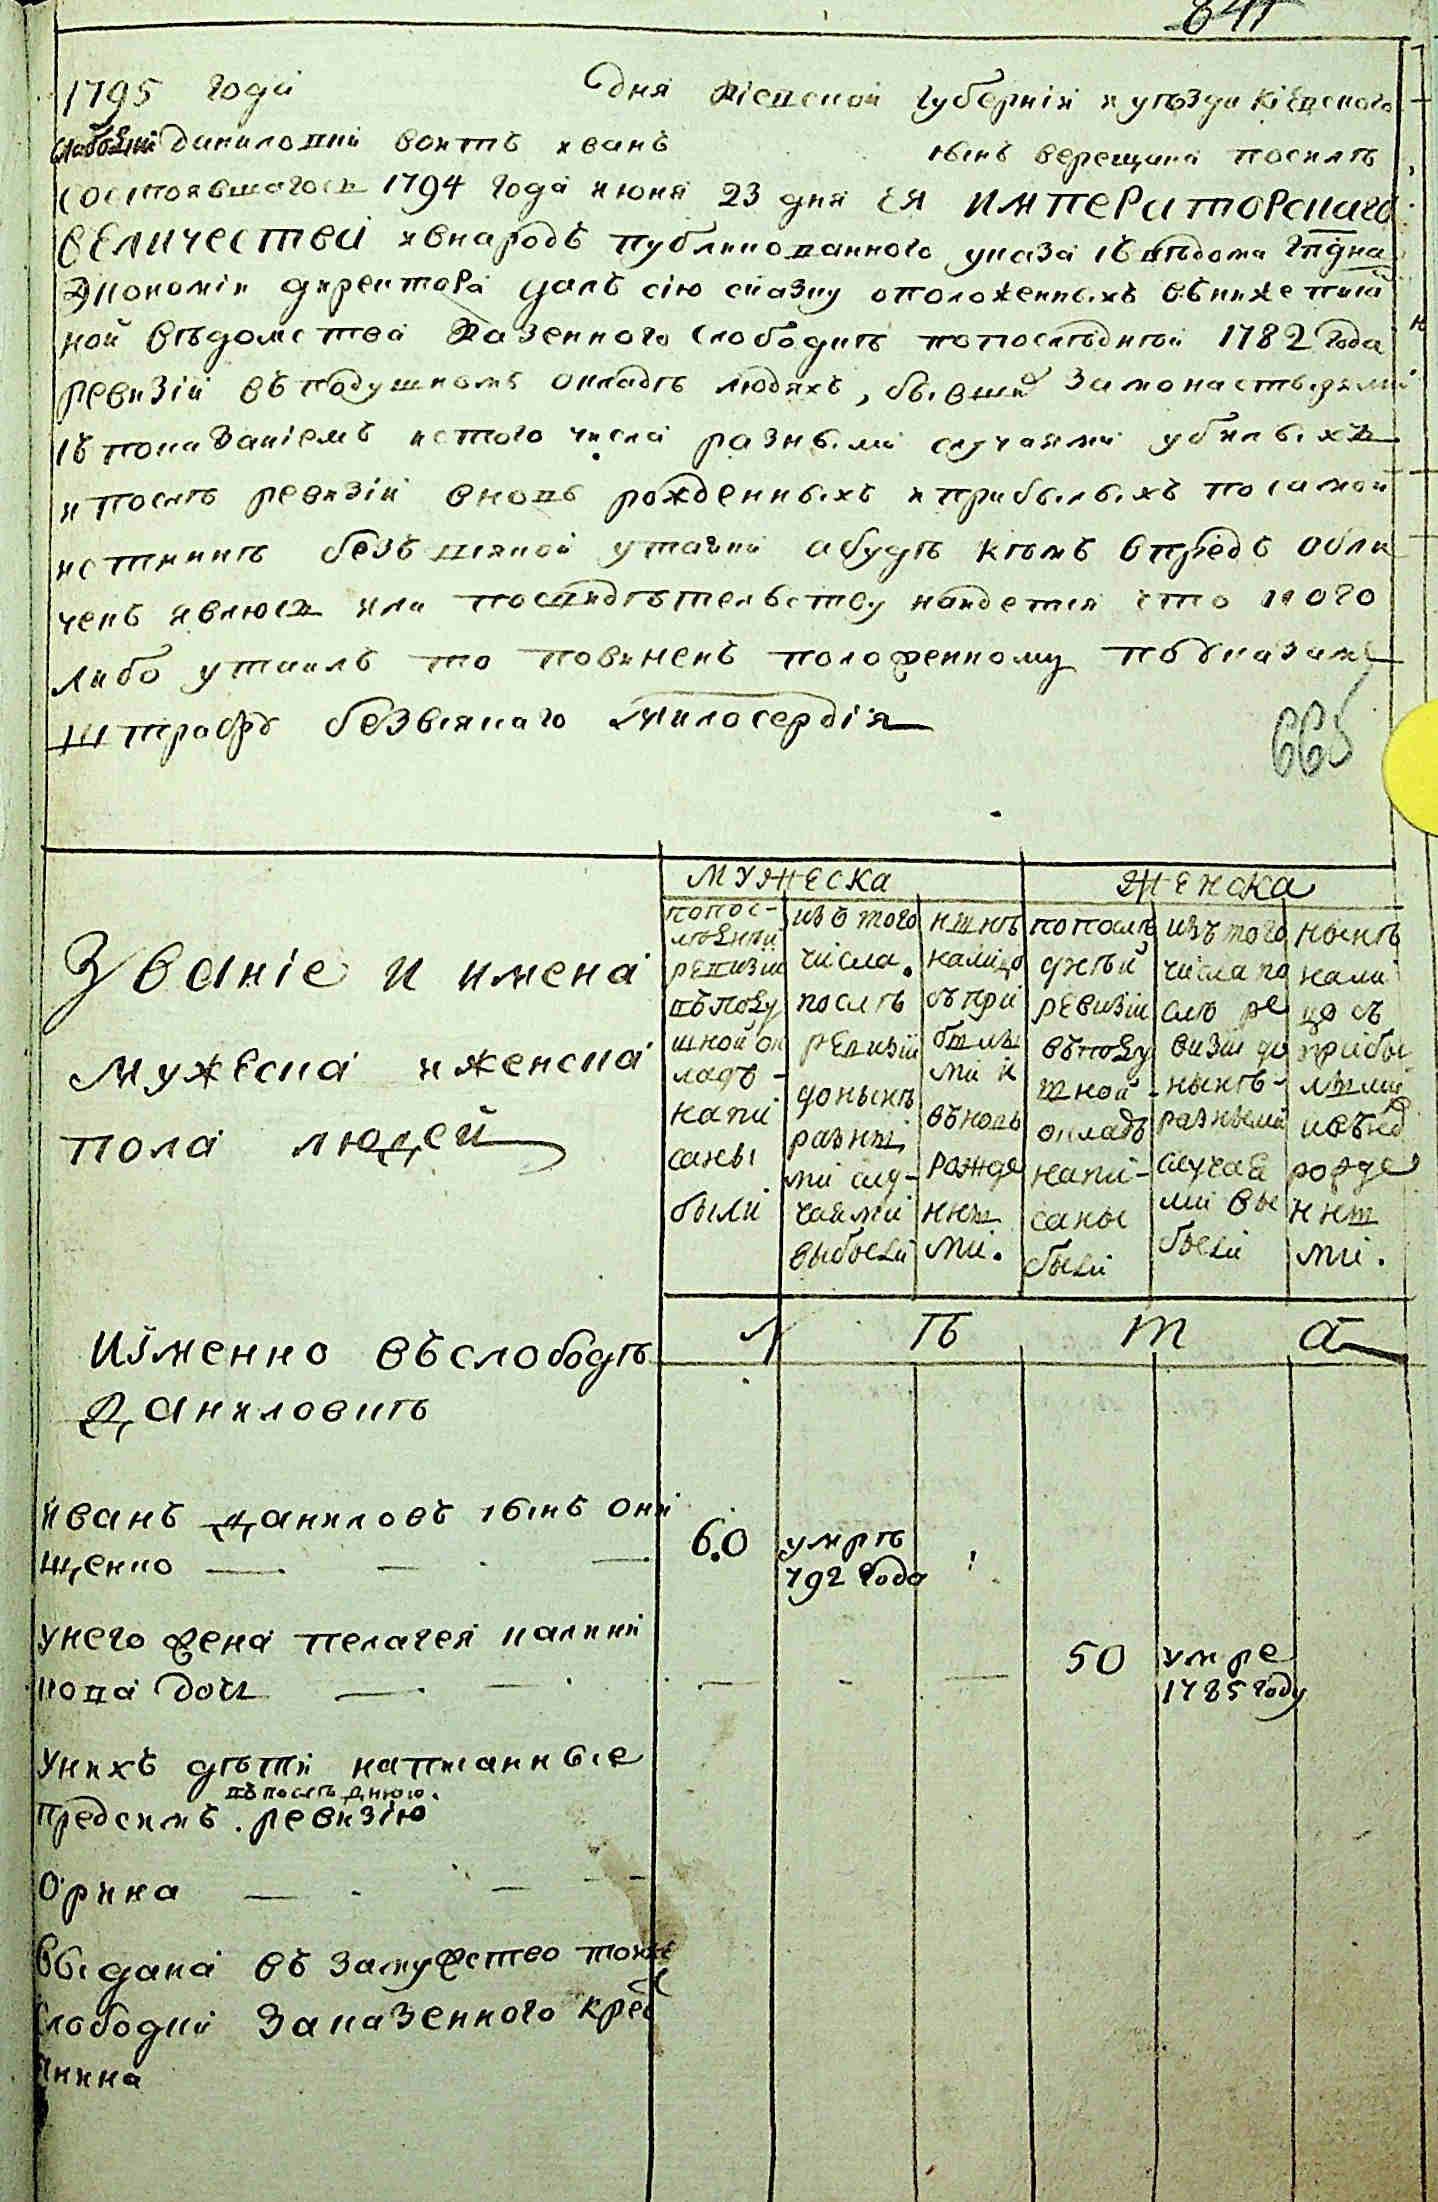 641
1795 года дня Кіевской губерніи и уезда Кіевского
слободки даниловки войтъ иванъ сынъ верещака послѣ
состоявшагося 1794 года июня 23 дня ея императорскаго
величества ивнародъ публикованного указа съ вѣдома Гпдна
экономіи директора далъ сію сказку оположенныхъ въ нижеписа
ной вѣдомства казенного слободкѣ попослѣдней 1782 года
ревизіи въ подушномъ окладѣ людяхъ, бывши за монастырями
съ показаніемъ истого числа разными случаями убилыхъ
и послѣ ревизіи вновь рожденныхъ и прибылыхъ по самой
истиннѣ безъ всякой утайки а будѣ кѣмъ впредь обли
ченъ явлюся или по свидѣтельству найдется что кого
либо утаилъ то повиненъ положенному по указамъ
штрафу безвсякаго милосердія
665
мужеска женска
Званіе и имена
мужеска и женска
пола людей
попос-
лѣднѣй
ревизіи
въ поду
шной ок
ладъ-
напи
саны
были
изъ того
числа.
послѣ
ревизіи
доныне
разны
ми слу-
чаями
выбыли
нынѣ
налицо
съ при
былы
ми и
въновь
рожде
нны
ми.
по послѣ
дней
ревизіи
въ поду
шной-
окладъ
напи-
саны
были
изъ того
числа по
слѣ ре
визіи до
нынѣ-
разными
случая
ми вы
были
нынѣ
нали
цо съ
прибы
лыми
и въно
рожде
нны
ми.
л ѣ т а
Иіменно въ слободѣ
Даниловкѣ
Иванъ Даниловъ сынъ они
щенко 60 умрѣ
792 года
унего жена пелагея калини
кова дочь 50 умре
1785 году
Унихъ дѣти написанные
въ послѣднюю.
предсимъ. ревизію
Орина
выдана въ замужство тоя же
слободки за казенного крес
янина